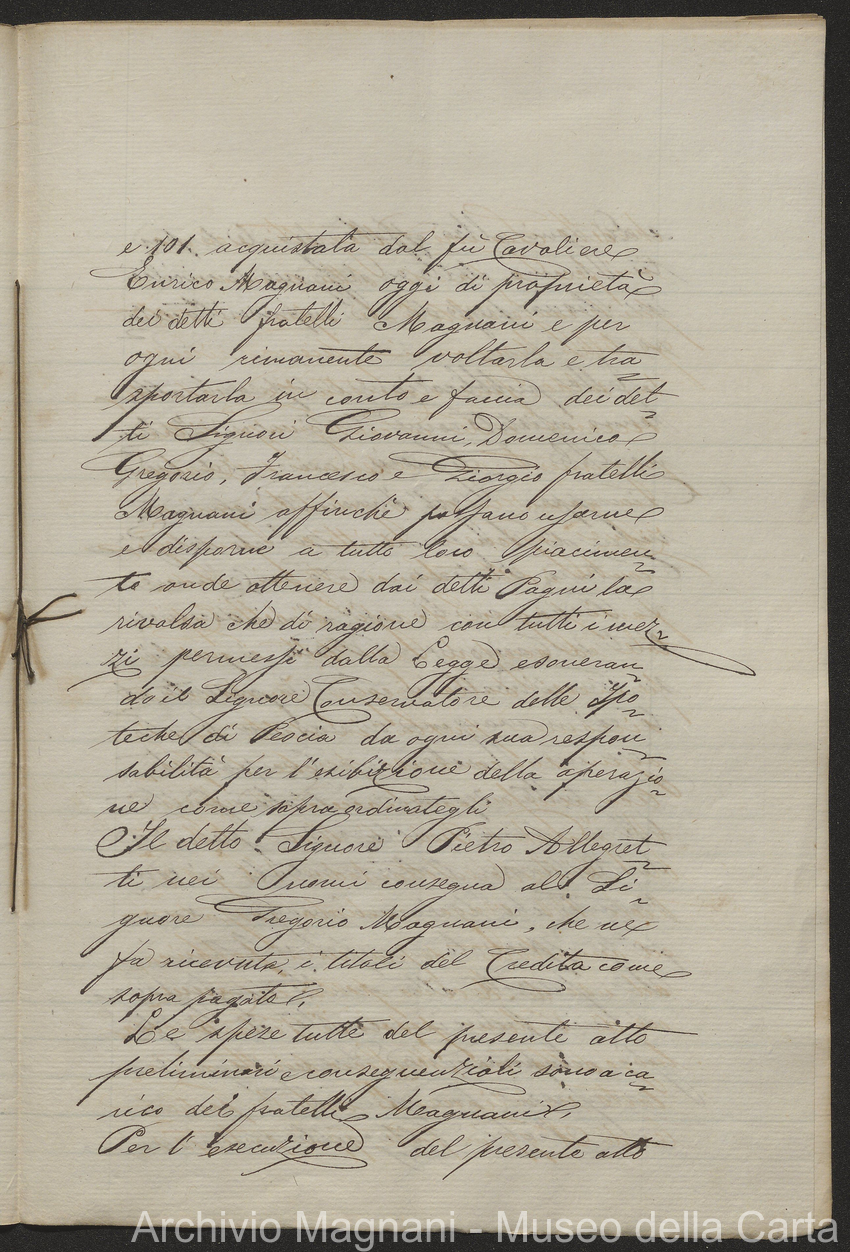 e 101. acquistata dal fù Cavaliere
Enrico Magnani oggi di proprietà
dei detti fratelli Magnani e per
ogni rimanente voltarla e tra
sportarla in conto e faccia dei det-
ti Signori Giovanni, Domenico
Gregorio, Francesco e Giorgio fratelli
Magnani affinchè possano usarne
e disporne a tutto loro piacimen
to onde ottenere dai detti Pagni la
rivalsa che di ragione con tutti i mez
zi permessi dalla Legge esoneran
do il Signore Conservatore delle Ipo
teche di Pescia da ogni sua respon
sabilità per l'esibizione della operazio
ne come sopra ordinategli
Il detto Signore Pietro Allegret
ti nei nomi consegna al Si
gnore Gregorio Magnani, che ne
fa ricevuta, i titoli del Credito come
sopra pagato.
Le spese tutte del presente atto
preliminari e conseguenziali sono a ca
rico dei fratelli Magnani.
Per l'esecuzione del presente atto
Archivio Magnani - Museo della Carta